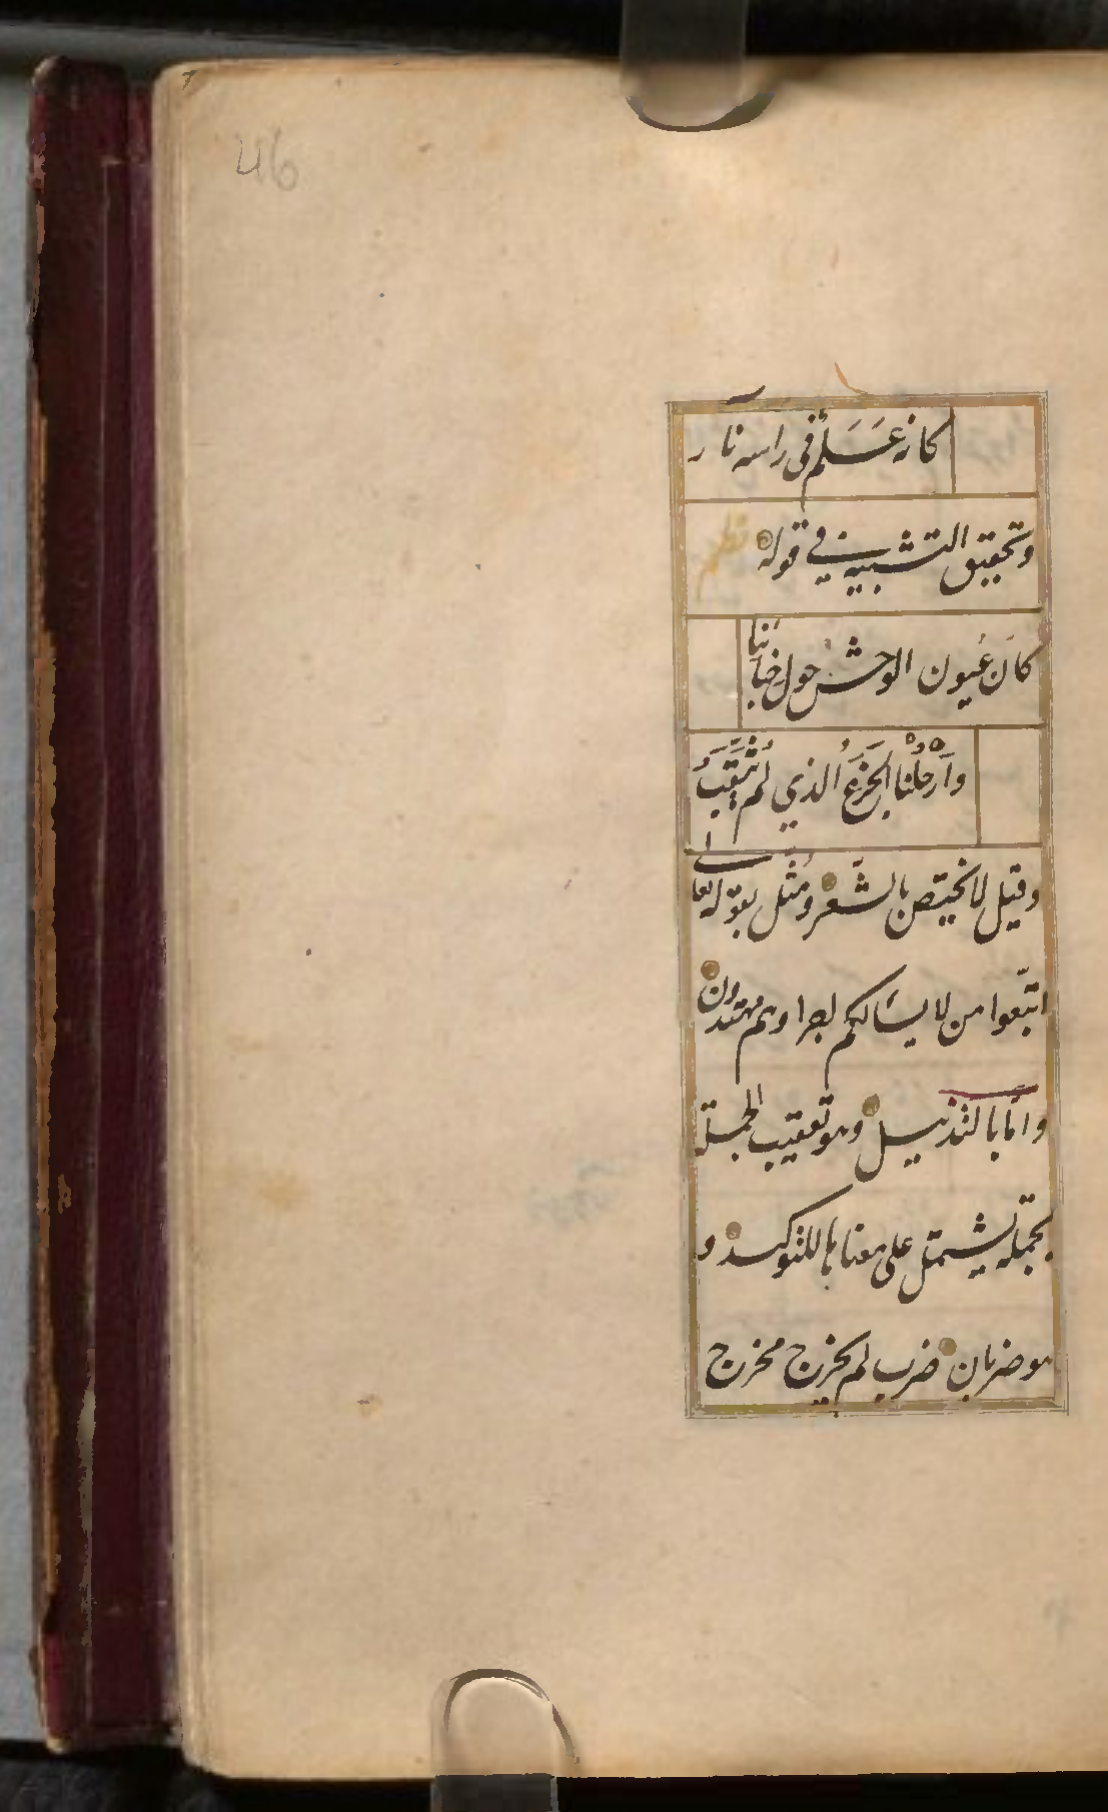 46
كانه عَلَم فى راسه نار
وتحقيق التشبيه في قوله نظم
كان عُيون الوحش حول خبائنا
وَارحُلنا الجَزعُ الذي لم يُثَقَّب
وقيل لا يختص بالشعر ومُثّل بقوله تعالى
اتبّعوا من لا يسَالكم اجرا وهم مهتدون
واما بالتذييل وهو تعقيب الجملة
بجملة يشتمل على معناها للتوكيد و
هو ضربان ضرب لم يخرج مخرج